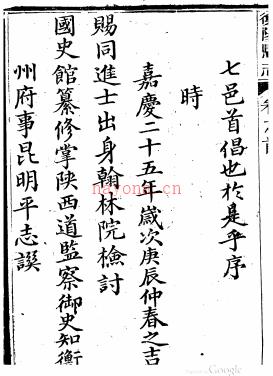 七邑首倡也於是乎序
時
嘉慶二十五年歲次庚辰仲春之吉
賜同進士出身翰林院檢討
國史館纂修掌陝西道監察御史知衡
州府事昆明平志譔
nayona.cn
Google